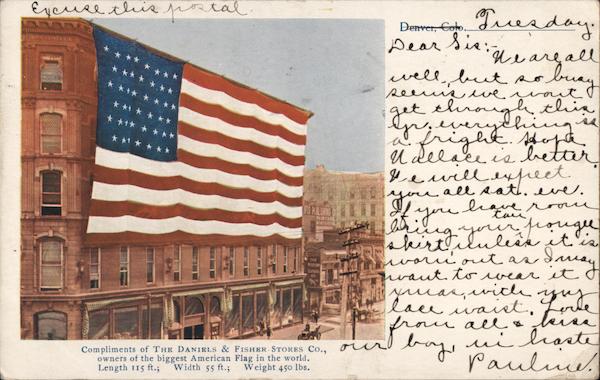 Excuse this postal
Denver, Colo. Tuesday.
Dear Sis:-
We are all
well, but so busy
seems we wont
get through this
yr. everything is
a fright. Hope
Wallace is better.
We will expect
you all sat. eve.
If you have room
bring your tan pongee
skirt, unless it is
worn out as I may
want to wear it
xmas, with my
lace waist. Love
from all & kiss
our boy, in haste
Pauline.
Compliments of THE DANIELS & FISHER STORES CO.,
owners of the biggest American Flag in the world.
Length 115 ft.; Width 55 ft.; Weight 450 lbs.